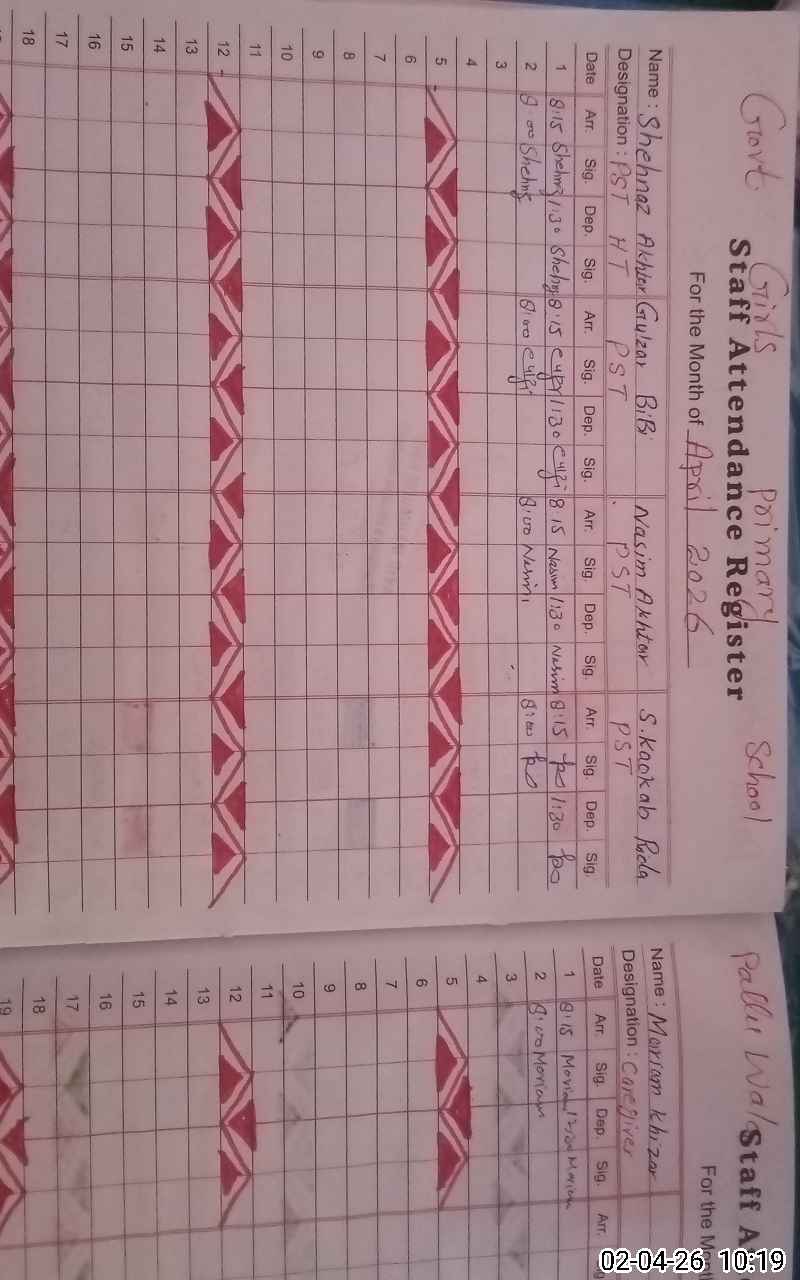 Govt Girls Primary School
Staff Attendance Register
For the Month of April 2026
Name : Shehnaz Akhter Gulzar BiBi Nasim Akhtar S.Kaokab Rida
Designation : PST HT PST PST PST
Date Arr. Sig. Dep. Sig. Arr. Sig. Dep. Sig. Arr. Sig. Dep. Sig. Arr. Sig. Dep. Sig.
1 8:15 1:30 8:15 1:30 8:15 Nasim 1:30 Nasim 8:15 1:30
2 8:00 8:00 8:00 Nasim 8:00
3
4
5
6
7
8
9
10
11
12
13
14
15
16
17
18
Staff A
For the Mon
Name : Mariam Khizar
Designation : Caregiver
Date Arr. Sig. Dep. Sig. Arr.
1 8:15 Mariam 12:00 Mariam
2 8:00 Mariam
3
4
5
6
7
8
9
10
11
12
13
14
15
16
17
18
19
02-04-26 10:19